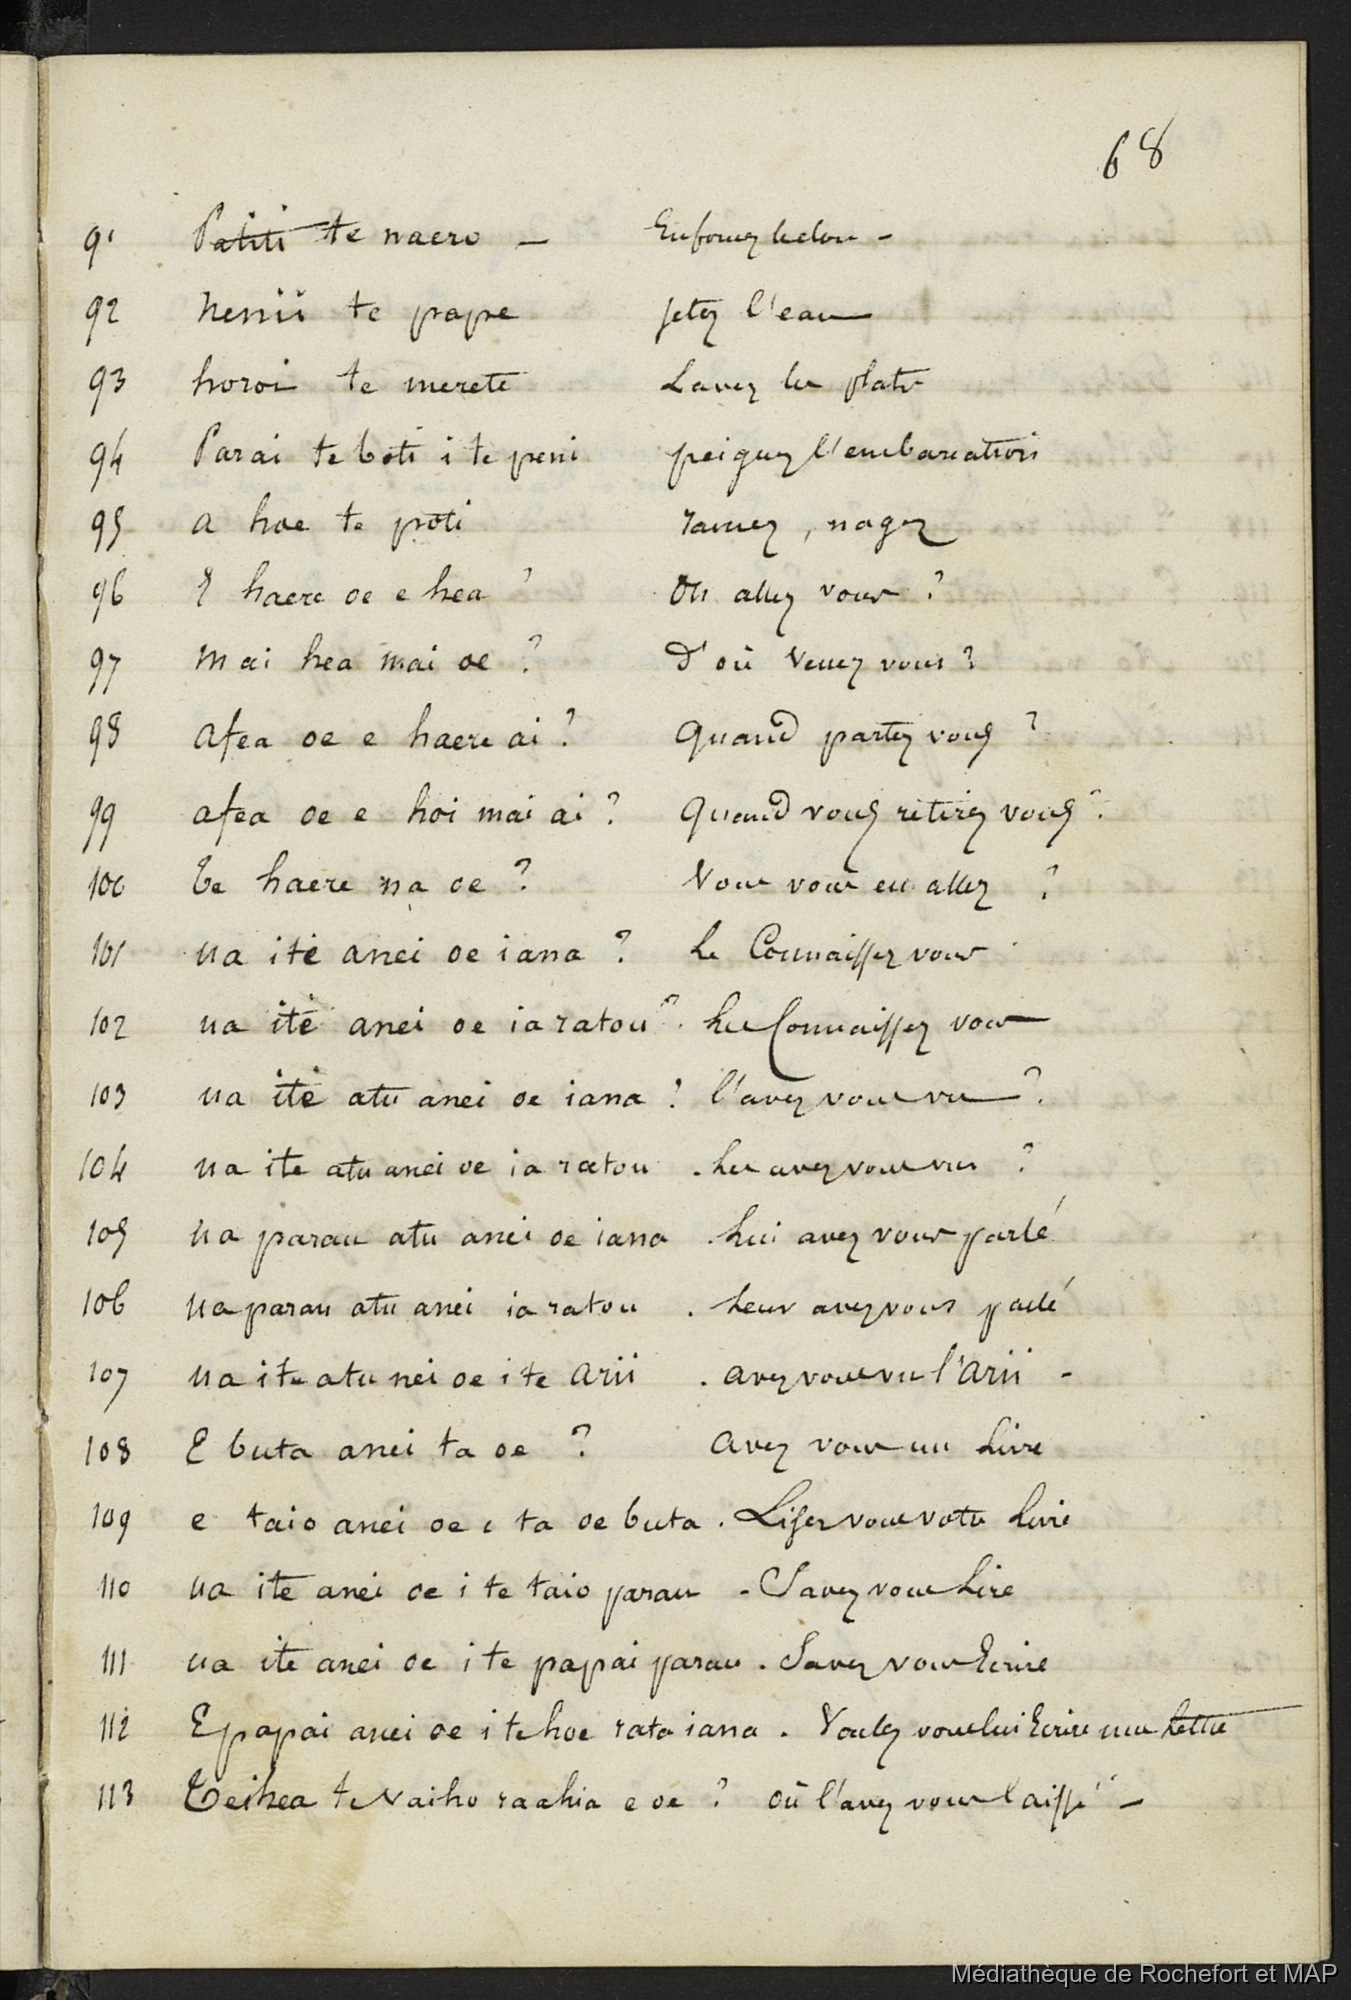 68
91 Patiti te naero — Enfoncez le clou -
92 nenii te pape jetez l'eau
93 horoi te merete Lavez les plats
94 Parai te boti i te peni peignez l'embarcation
95 a hoe te poti ramez, nagez
96 E haere oe e hea ? Où allez vous ?
97 Mai hea mai oe ? D'où Venez vous ?
98 afea oe e haere ai ? Quand partez vous ?
99 afea oe e hoi mai ai ? Quand vous retirez vous ?
100 Te haere na oe ? Vous vous en allez ?
101 ua ite anei oe iana ? Le Connaissez vous
102 ua ite anei oe ia ratou ? . Les Connaissez vous
103 ua ite atu anei oe iana ? l'avez vous vu ?
104 ua ite atu anei oe ia ratou . Les avez vous vus ?
105 ua parau atu anei oe iana . Lui avez vous parlé
106 ua parau atu anei ia ratou . Leur avez vous parlé
107 ua ite atu nei oe i te arii . avez vous vu l'arii -
108 E buta anei ta oe ? avez vous un Livre
109 e taio anei oe i ta oe buta . Lisez vous votre Livre
110 ua ite anei oe i te taio parau - Savez vous Lire
111 ua ite anei oe i te papai parau . Savez vous Ecrire
112 E papai anei oe i te hoe rata iana . Voulez vous lui Ecrire une lettre
113 Teihea te vaiho raahia e oe ? où l'avez vous laissé —
Médiathèque de Rochefort et MAP